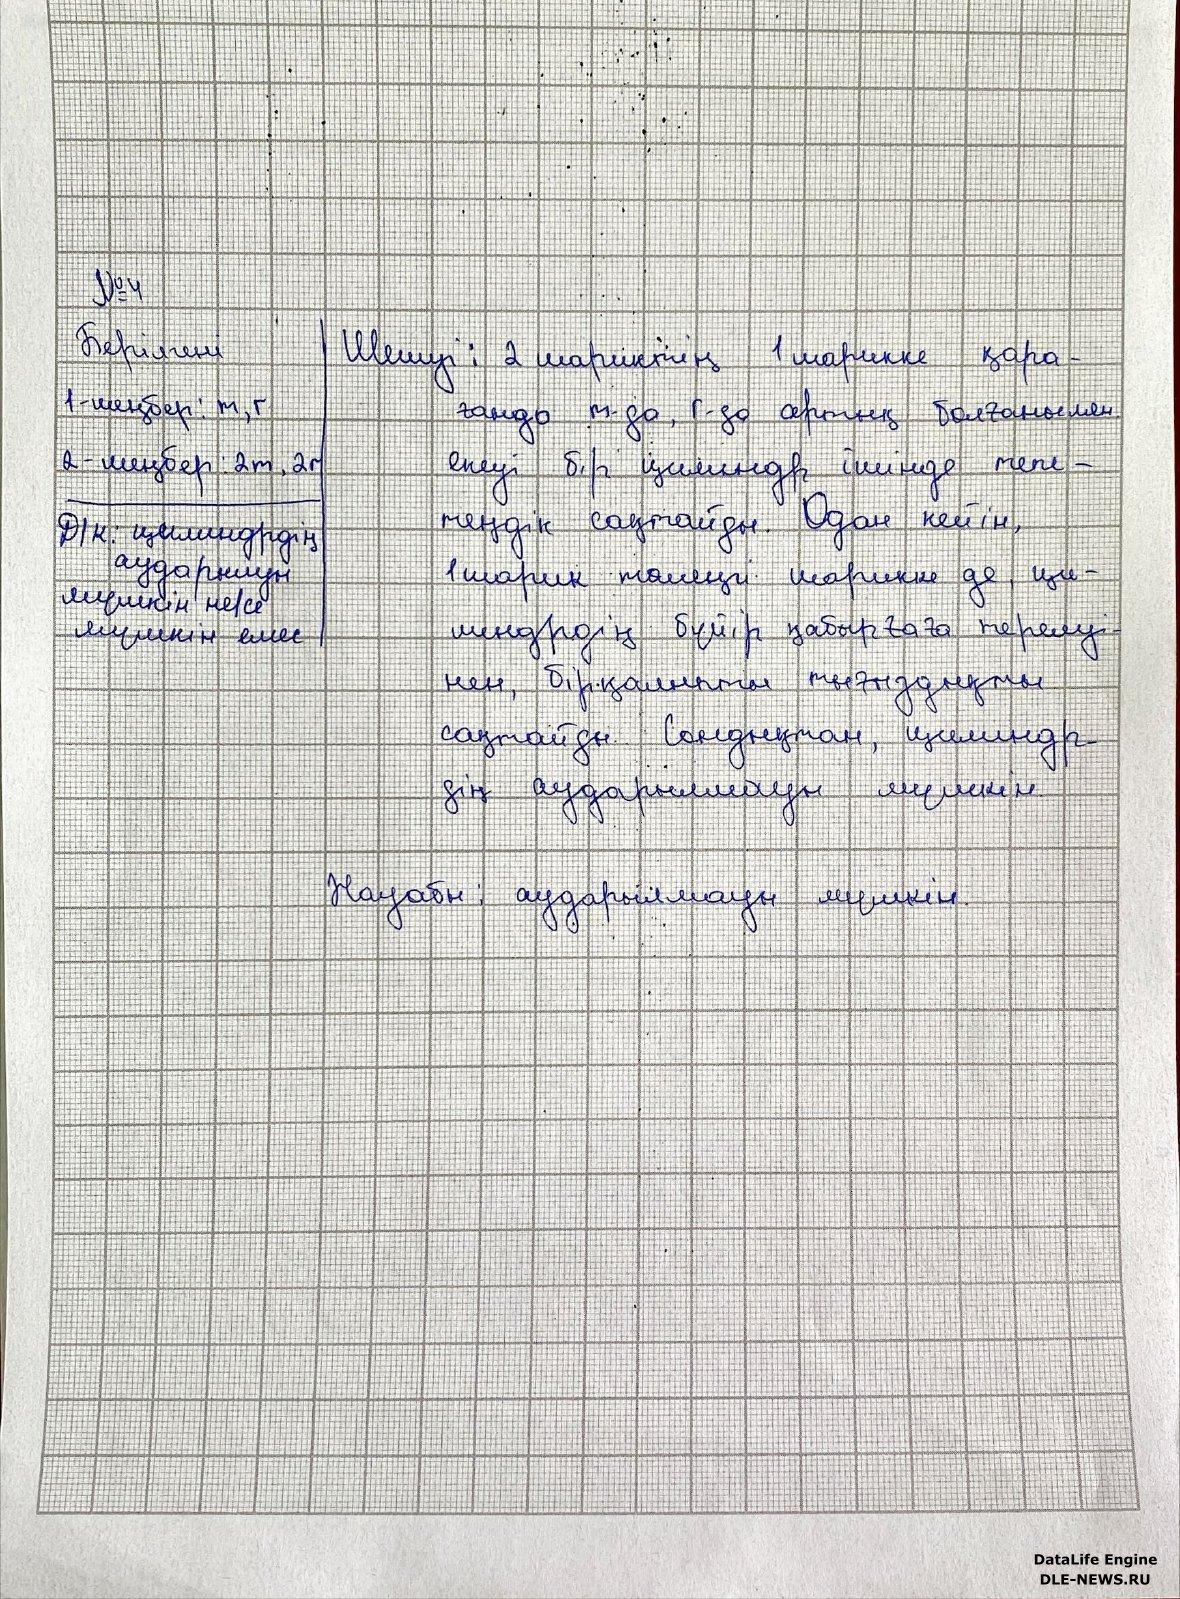 №4
Берілгені
1-шеңбер: m, r
2-шеңбер: 2m, 2r
Д/к: цилиндрдің
аударылуы
мүмкін не/се
мүмкін емес
Шешуі: 2 шариктің 1 шарикке қара-
ғанда m-да, r-да артық болғанымен
екеуі бір цилиндр ішінде тепе-
теңдік сақтайды. Одан кейін,
1 шарик төменгі шарикке де, ци-
линдрдің бүйір қабырғаға тірелуі-
нен, бірқалыпты тығыздықты
сақтайды. Сондықтан, цилиндр-
дің аударылмауы мүмкін.
Жауабы: аударылмауы мүмкін.
DataLife Engine
DLE-NEWS.RU